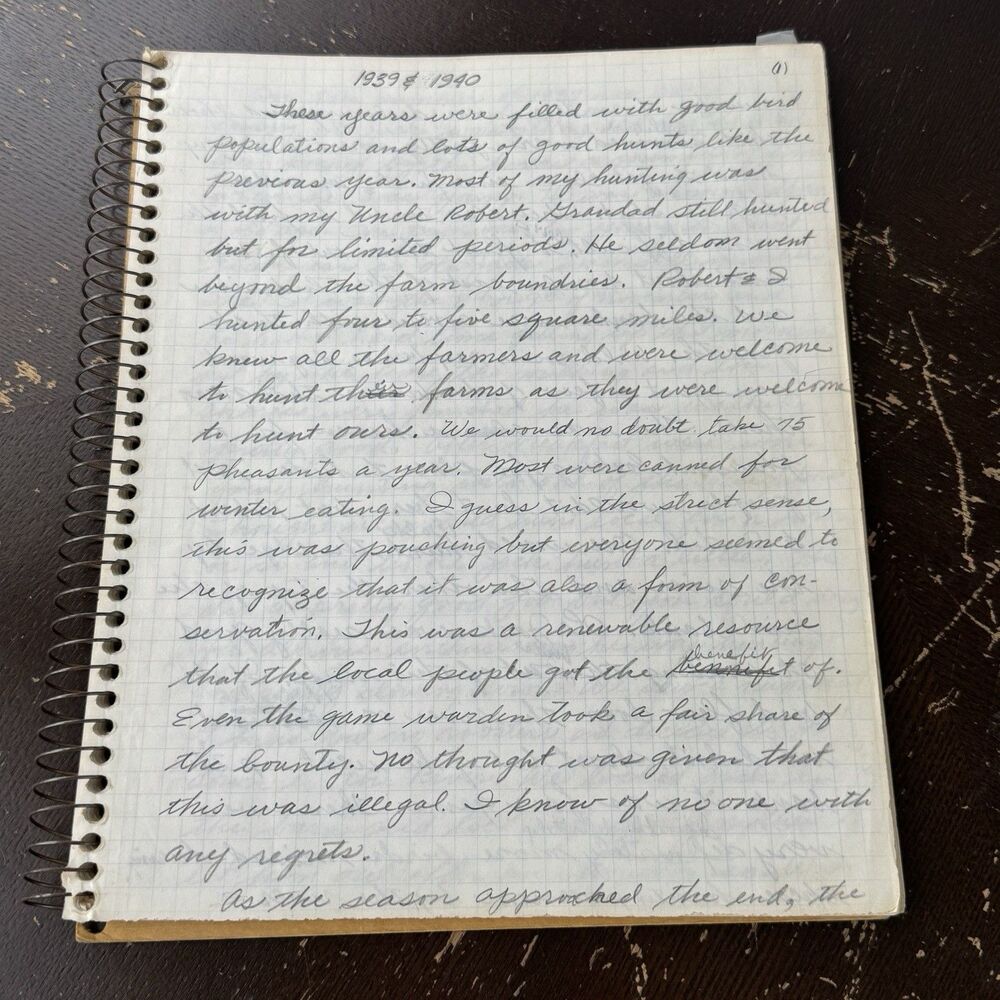 1939 & 1940
(1)
These years were filled with good bird
populations and lots of good hunts like the
previous year. Most of my hunting was
with my Uncle Robert. Grandad still hunted
but for limited periods. He seldom went
beyond the farm boundries. Robert & I
hunted four to five square miles. We
knew all the farmers and were welcome
to hunt their farms as they were welcome
to hunt ours. We would no doubt take 75
pheasants a year. Most were canned for
winter eating. I guess in the strict sense,
this was pouching but everyone seemed to
recognize that it was also a form of con-
servation. This was a renewable resource
benefit
that the local people got the bennifit of.
Even the game warden took a fair share of
the bounty. No thought was given that
this was illegal. I know of no one with
any regrets.
As the season approached the end, the